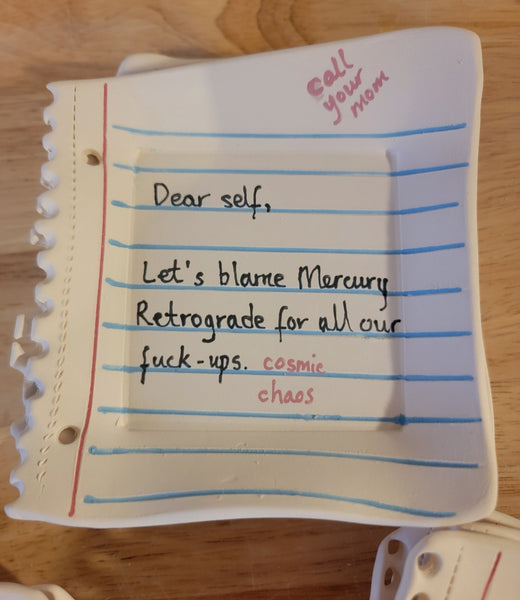 call
your
mom
Dear self,
Let's blame Mercury
Retrograde for all our
fuck-ups. cosmic
chaos